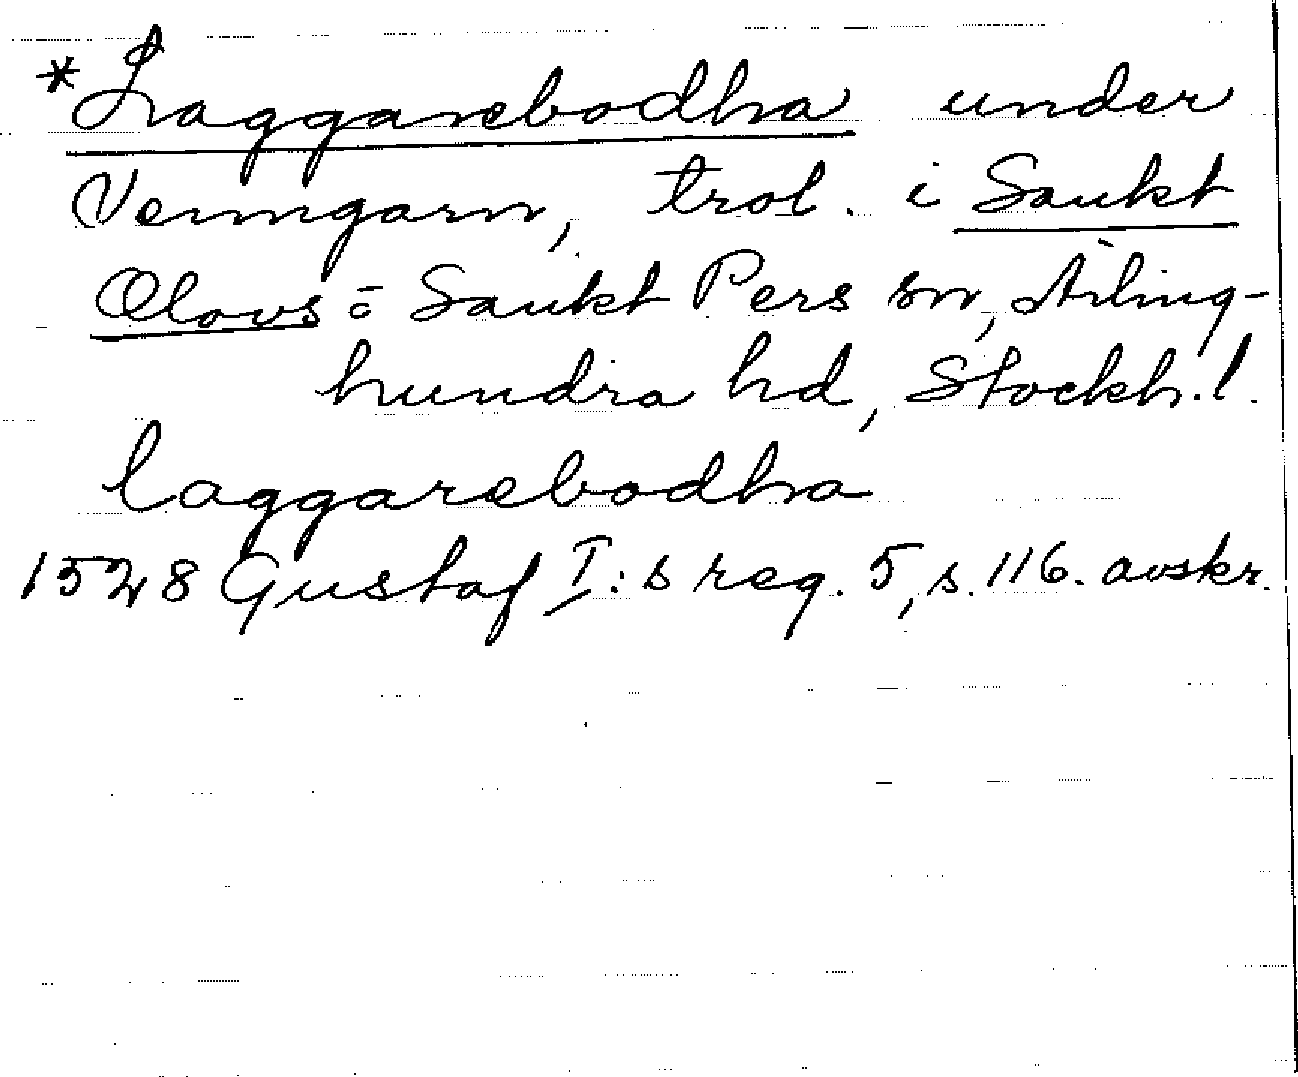 *Laggarebodha under
Venngarn, trol. i Sankt
Olovs = Sankt Pers sn, Ärling-
hundra hd, Stockh. l.
laggarebodha
1528 Gustaf I:s reg. 5, s. 116. avskr.